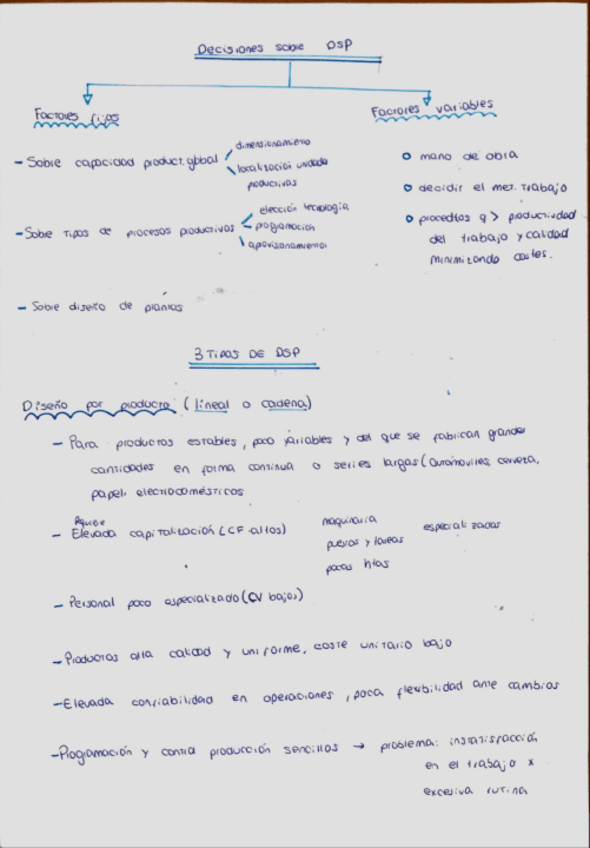 Decisiones sobre DSP
Factores fijos
Factores variables
- Sobre capacidad product. global
dimensionamiento
localización unidade
productivas
- Sobre tipos de procesos productivos
elección tecnología
programación
aprovisionamiento
- Sobre diseño de plantas
o mano de obra
o decidir el met. trabajo
o proceditos q > productividad
del trabajo y calidad
minimizando costes.
3 TIPOS DE DSP
Diseño por producto (lineal o cadena)
- Para productos estables, poco variables y del que se fabrican grandes
cantidades en forma continua o series largas (automóviles, cerveza,
papel, electrodomésticos
- Requiere
Elevada capitalización (CF altos)
maquinaria
puestos y tareas
pocas htas
especializadas
- Personal poco especializado (CV bajos)
- Productos alta calidad y uniforme, coste unitario bajo
- Elevada confiabilidad en operaciones, poca flexibilidad ante cambios
- Programación y control producción sencillos → problema: insatisfacción
en el trabajo x
excesiva rutina